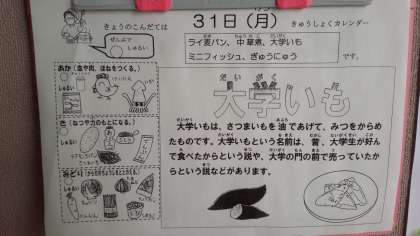 きょうのこんだては
31日(月)
きゅうしょくカレンダー
ぜんぶで
しゅるい
ライ麦パン、中華煮、大学いも
ミニフィッシュ、ぎゅうにゅう
です。
あか(血や肉、ほねをつくる。)
しゅるい
き(ねつや力のもとになる。)
しゅるい
みどり
しゅるい
だいがく
大学いも
大学いもは、さつまいもを油であげて、みつをからめ
たものです。大学いもという名前は、昔、大学生が好ん
で食べたからという説や、大学の門の前で売っていたか
らという説などがあります。